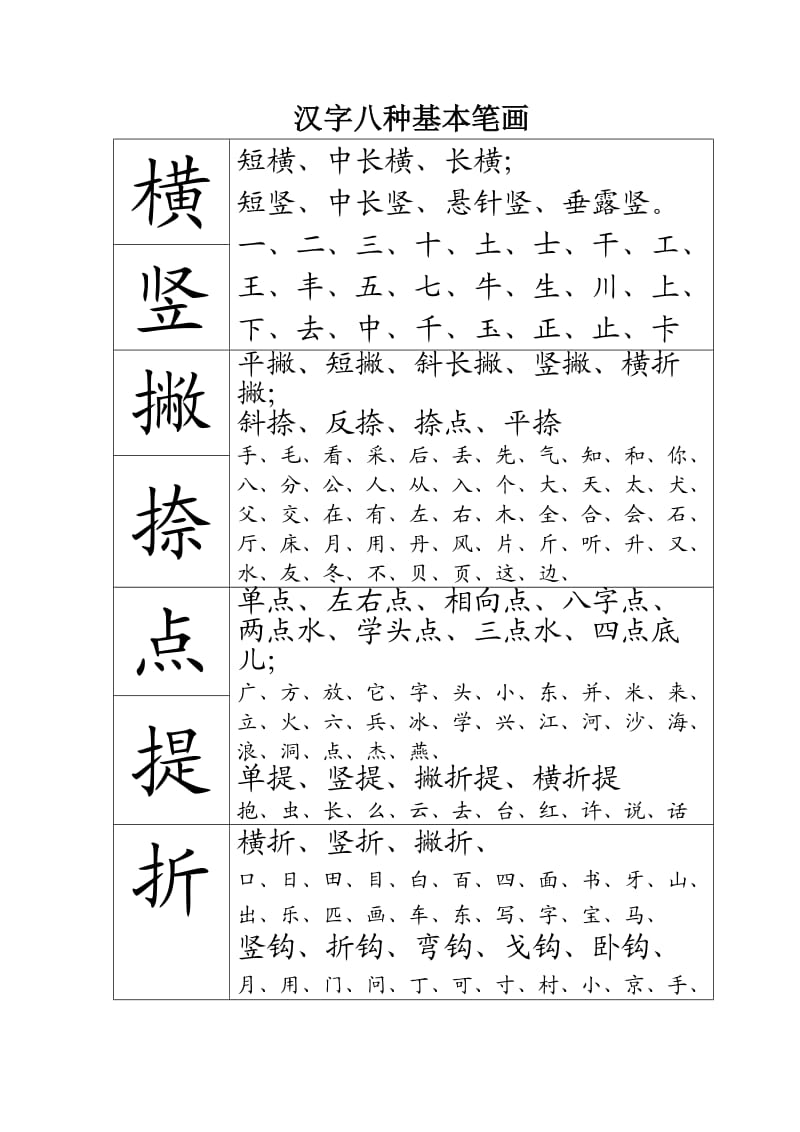 汉字八种基本笔画
横
短横、中长横、长横;
短竖、中长竖、悬针竖、垂露竖。
一、二、三、十、土、士、干、工、
竖
王、丰、五、七、牛、生、川、上、
下、去、中、千、玉、正、止、卡
撇
平撇、短撇、斜长撇、竖撇、横折
撇;
斜捺、反捺、捺点、平捺
捺
手、毛、看、采、后、丢、先、气、知、和、你、
八、分、公、人、从、入、个、大、天、太、犬、
父、交、在、有、左、右、木、全、合、会、石、
厅、床、月、用、丹、风、片、斤、听、升、又、
水、友、冬、不、贝、页、这、边、
点
单点、左右点、相向点、八字点、
两点水、学头点、三点水、四点底
儿;
广、方、放、它、字、头、小、东、并、米、来、
提
立、火、六、兵、冰、学、兴、江、河、沙、海、
浪、洞、点、杰、燕、
单提、竖提、撇折提、横折提
抱、虫、长、么、云、去、台、红、许、说、话
折
横折、竖折、撇折、
口、日、田、目、白、百、四、面、书、牙、山、
出、乐、匹、画、车、东、写、字、宝、马、
竖钩、折钩、弯钩、戈钩、卧钩、
月、用、门、问、丁、可、寸、村、小、京、手、